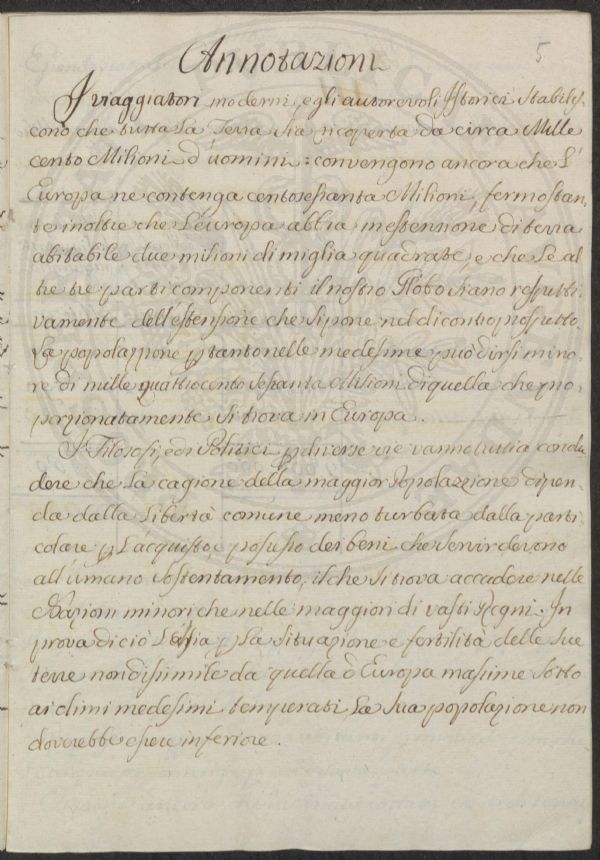 Annotazioni
5
I viaggiatori moderni, e gli autorevoli Istorici stabilis-
cono che tutta La Terra sia ricoperta da circa Mille
cento Milioni d'uomini: convengono ancora che L'
Europa ne contenga centosessanta Milioni, fermo stan-
te inoltre che L'europa abbia in estensione di terra
abitabile due milioni di miglia quadrate, e che Le al
tre tre parti componenti il nostro Globo siano rispetti-
vamente dell'estensione che si pone nel di contro prospetto
La popolazzione p tanto nelle medesime può dirsi mino-
re di mille quattrocento sessanta Milioni di quella che pro-
porzionatamente si trova in Europa.
I Filosofi, ed i Politici p diverse vie vanno tuttia conclu
dere che La cagione della maggior Popolazzione dipen-
da dalla Libertà comune meno turbata dalla parti
colare p L'acquisto, e possesso dei beni che servir devono
all'umano sostentamento; il che si trova accadere nelle
Nazioni minori che nelle maggiori di vasti Regni. In
prova di ciò L'Asia p La situazione e fertilità delle sue
terre non dissimile da quella d'Europa massime sotto
ai climi medesimi temperati, La sua popolazione non
doverebbe essere inferiore.